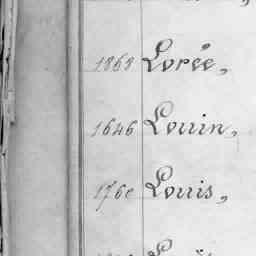 1868 Lorée,
1646 Louin,
1760 Louis,